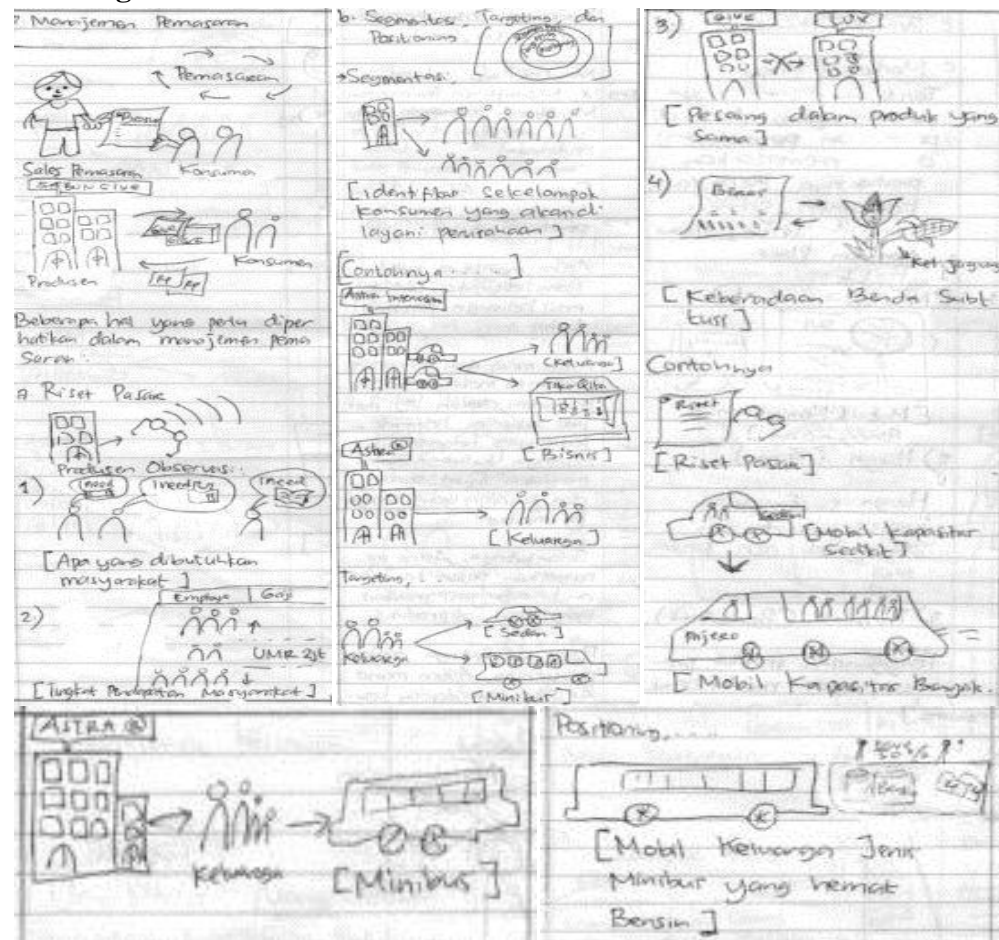 Manajemen Pemasaran
Pemasaran
Brosur
Sales Pemasaran Konsumen
SABUN GIVE
Konsumen
Produsen
Rp Rp
Beberapa hal yang perlu diper
hatikan dalam manajemen Pema
saran :
a Riset Pasar
Produsen Observasi
1)
I need
I need
I need
[Apa yang dibutuhkan
masyarakat ]
2)
Employe Gaji
UMR 2jt
[Tingkat Pendapatan Masyarakat ]
b. Segmentasi, Targeting, dan
Positioning
→Segmentasi:
[identifikasi sekelompok
konsumen yang akan di
layani perusahaan ]
[Contohnya ]
Astra Internasional
[Keluarga]
Toko Qita
[Bisnis]
Astra ®
[Keluarga]
Targeting,
Keluarga
[Sedan]
[Minibus]
3)
GIVE
LUX
[Pesaing dalam produk yang
Sama ]
4)
Benar
Ket. jagung
[ Keberadaan Benda Subt
tusi ]
Contohnya
Riset
[Riset Pasar]
[Mobil Kapasitas
Sedikit ]
Pajero
[ Mobil Kapasitas Banyak.
ASTRA ®
Keluarga
[Minibus]
Positioning,....
[Mobil Keluarga Jenis
Minibus yang hemat
Bensin ]